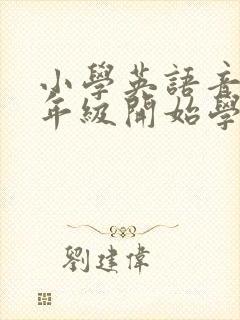 小學英語音
年級開始學
劉建偉